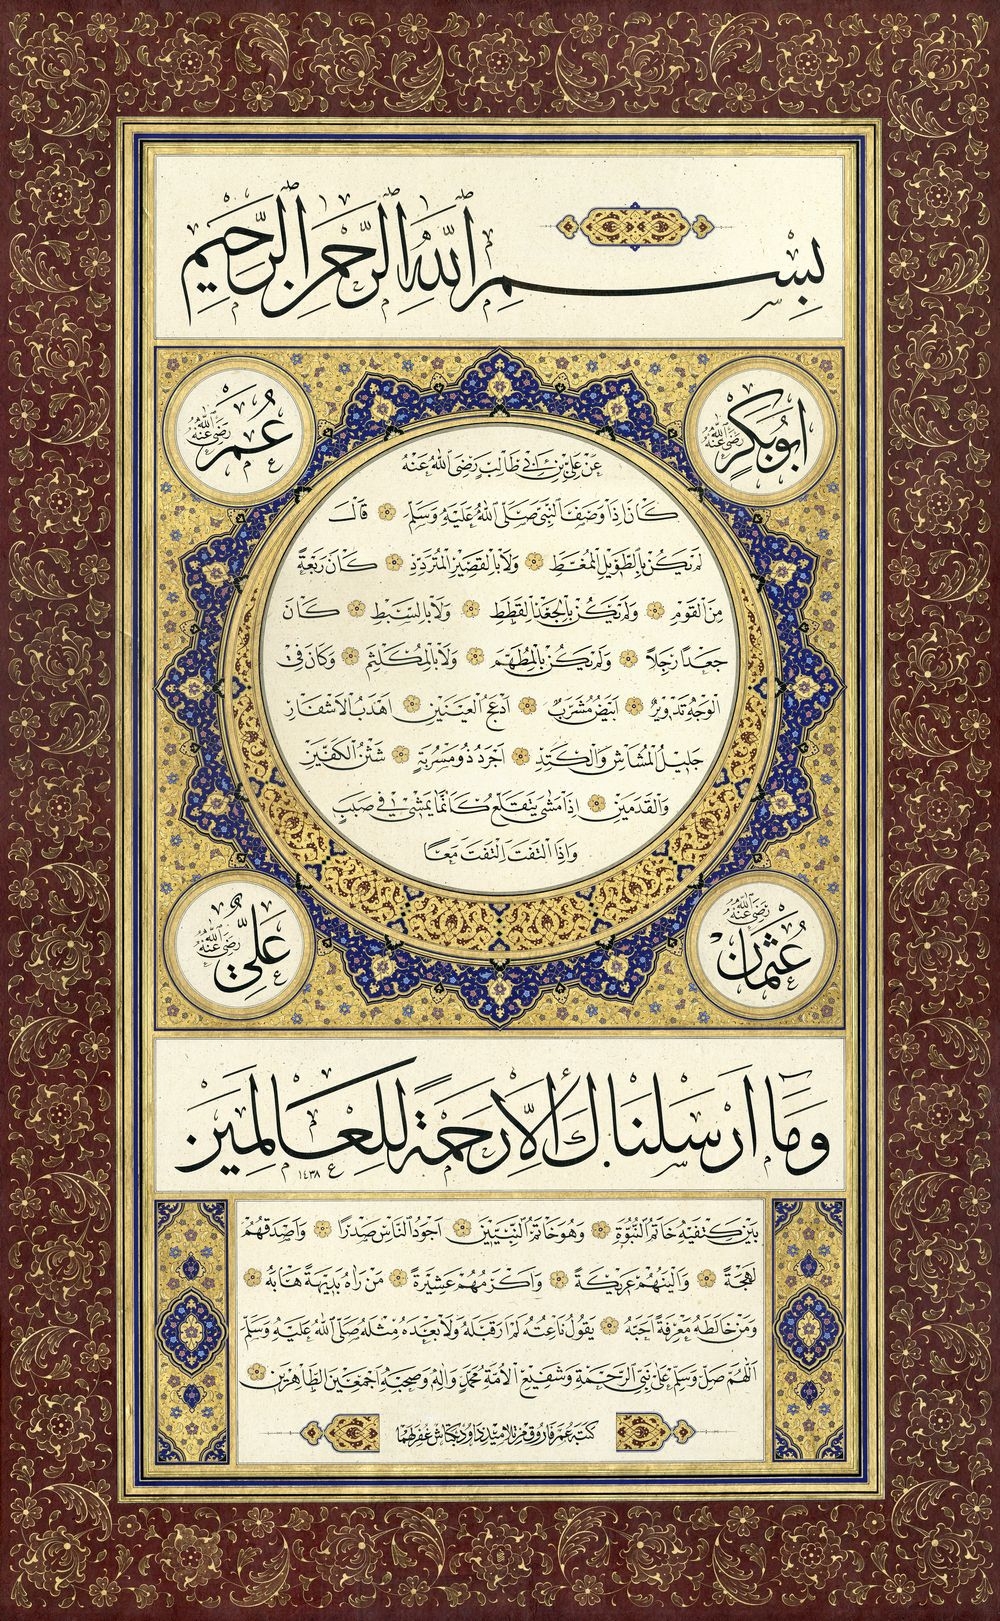 بِسْمِ اللّٰهِ الرَّحْمٰنِ الرَّحِيمِ
ابُوبَكْرٍ رَضِىَ اللّٰهُ عَنْهُ
عُمَرْ رَضِىَ اللّٰهُ عَنْهُ
عَنْ عَلِىِّ بْنِ اَبِى طَالِبٍ رَضِىَ اللّٰهُ عَنْهُ
كَانَ اِذَا وَصَفَ النَّبِىَّ صَلَّى اللّٰهُ عَلَيْهِ وَسَلَّمَ قَالَ
لَمْ يَكُنْ بِالطَّوِيلِ الْمُمَغَّطِ وَلَا بِالْقَصِيرِ الْمُتَرَدِّدِ كَانَ رَبْعَةً
مِنَ الْقَوْمِ وَلَمْ يَكُنْ بِالْجَعْدِ الْقَطَطِ وَلَا بِالسَّبِطِ كَانَ
جَعْدًا رَجِلًا وَلَمْ يَكُنْ بِالْمُطَهَّمِ وَلَا بِالْمُكَلْثَمِ وَكَانَ فِى
الْوَجْهِ تَدْوِيرٌ اَبْيَضُ مُشْرَبٌ اَدْعَجُ الْعَيْنَيْنِ اَهْدَبُ الْاَشْفَارِ
جَلِيلُ الْمُشَاشِ وَالْكَتَدِ اَجْرَدُ ذُو مَسْرُبَةٍ شَثْنُ الْكَفَّيْنِ
وَالْقَدَمَيْنِ اِذَا مَشٰى يَتَقَلَّعُ كَاَنَّمَا يَمْشِى فِى صَبَبٍ
وَاِذَا الْتَفَتَ اِلْتَفَتَ مَعًا
عُثْمَانْ رَضِىَ اللّٰهُ عَنْهُ
عَلِىٌّ رَضِىَ اللّٰهُ عَنْهُ
وَمَا اَرْسَلْنَاكَ اِلَّا رَحْمَةً لِلْعَالَمِينَ
١٤٣٨
بَيْنَ كَتِفَيْهِ خَاتَمُ النُّبُوَّةِ وَهُوَ خَاتَمُ النَّبِيِّينَ اَجْوَدُ النَّاسِ صَدْرًا وَاَصْدَقُهُمْ
لَهْجَةً وَاَلْيَنُهُمْ عَرِيكَةً وَاَكْرَمُهُمْ عَشِيرَةً مَنْ رَاٰهُ بَدِيهَةً هَابَهُ
وَمَنْ خَالَطَهُ مَعْرِفَةً اَحَبَّهُ يَقُولُ نَاعِتُهُ لَمْ اَرَ قَبْلَهُ وَلَا بَعْدَهُ مِثْلَهُ صَلَّى اللّٰهُ عَلَيْهِ وَسَلَّمَ
اَللّٰهُمَّ صَلِّ وَسَلِّمْ عَلٰى نَبِىِّ الرَّحْمَةِ وَشَفِيعِ الْاُمَّةِ مُحَمَّدٍ وَاٰلِهِ وَصَحْبِهِ اَجْمَعِينَ الطَّاهِرِينَ
كتبه عمر فاروق من تلاميذ داود بكتاش غفر لهما